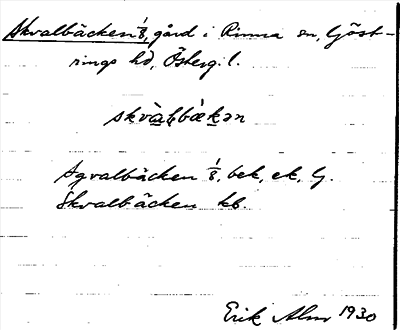 Skvalbäcken 1/8, gård i Rinna sn, Göst-
rings hd, Östergl.
skvàḷbæ̀kən
Sqvalbäcken 1/8, bek, ek, G.
Skvalbäcken kb.
Erik Alm 1930